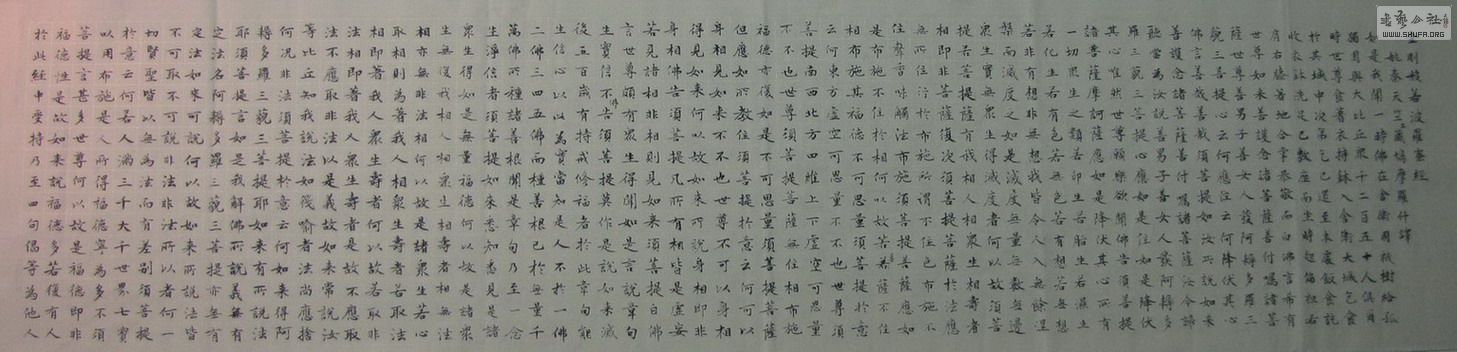 金剛般若波羅蜜經
姚秦天竺三藏鳩摩羅什譯
如是我聞一時佛在舍衛國祇樹給孤
獨園與大比丘眾千二百五十人俱爾
時世尊食時著衣持鉢入舍衛大城乞食
於其城中次第乞已還至本處飯食訖
收衣鉢洗足已敷座而坐時起偏袒右
肩右膝著地合掌恭敬而白佛言希有
世尊如來善護念諸菩薩善付囑諸菩
薩世尊善男子善女人發阿耨多羅三
藐三菩提心應云何住云何降伏其心
佛言善哉善哉須菩提如汝所說如來
善護念諸菩薩善付囑諸菩薩汝今諦
聽當為汝說善男子善女人發阿耨多
羅三藐三菩提心應如是住如是降伏
其心唯然世尊願樂欲聞佛告須菩提
諸菩薩摩訶薩應如是降伏其心所有
一切眾生之類若卵生若胎生若濕生
若化生若有色若無色若有想若無想
若非有想非無想我皆令入無餘涅
槃而滅度之如是滅度無量無數無邊
眾生實無眾生得滅度者何以故須菩
提若菩薩有我相人相眾生相壽者相
即非菩薩復次須菩提菩薩於法應
無所住行於布施所謂不住色布施不
住聲香味觸法布施須菩提菩薩應如
是布施不住於相何以故若菩薩不住
相布施其福德不可思量須菩提於意
云何東方虛空可思量不不也世尊須
菩提南西北方四維上下虛空可思量
不不也世尊須菩提菩薩無住相布施
福德亦復如是不可思量須菩提菩薩
但應如所教住須菩提於意云何可以
身相見如來不不也世尊不可以身相
得見如來何以故如來所說身相即非
身相佛告須菩提凡所有相皆是虛妄
若見諸相非相則見如來須菩提白佛
言世尊頗有眾生得聞如是言說章句
生實信不佛告須菩提莫作是說如來滅
後五百歲有持戒修福者於此章句能
生信心以此為實當知是人不於一佛
二佛三四五佛而種善根已於無量千
萬佛所種諸善根聞是章句乃至一念
生淨信者須菩提如來悉知悉見是諸
眾生得如是無量福德何以故是諸眾
生無復我相人相眾生相壽者相無法
相亦無非法相何以故是諸眾生若心
取相則為著我人眾生壽者若取法
相即著我人眾生壽者何以故若取非
法相即著我人眾生壽者是故不應取
法不應取非法以是義故如來常說汝
等比丘知我說法如筏喻者法尚應捨
何況非法須菩提於意云何如來得阿
耨多羅三藐三菩提耶如來有所說法
耶須菩提言如我解佛所說義無有
定法名阿耨多羅三藐三菩提亦無有
定法如來可說何以故如來所說法皆
不可取不可說非法非非法所以者何一
切賢聖皆以無為法而有差別須菩提
於意云何若人滿三千大千世界七寶
以用布施是人所得福德寧為多不須
菩提言甚多世尊何以故是福德即非
福德性是故如來說福德多若復有人
於此經中受持乃至四句偈等為他人
書藝公社
WWW.SHUFA.ORG